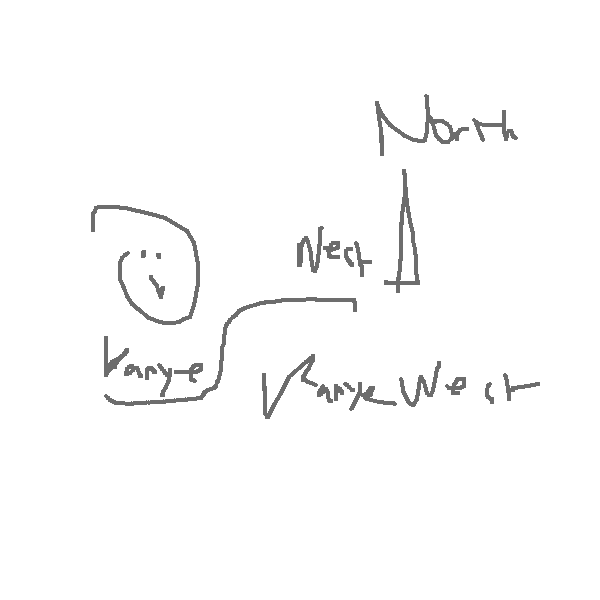 North
West
Kanye
Kanye West